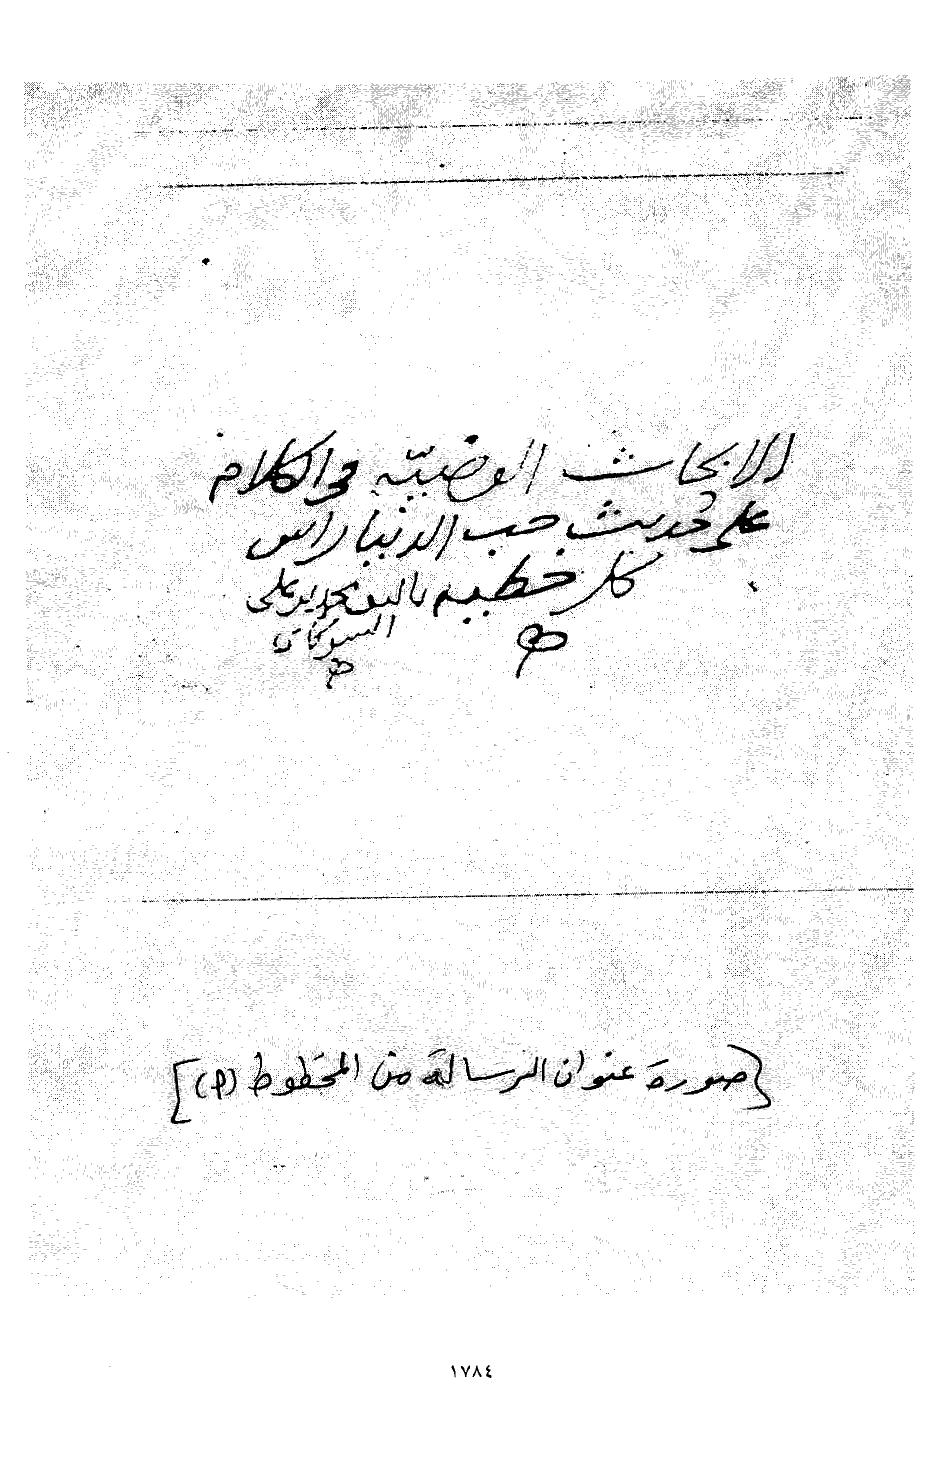 الابحاث الوضيّه في الكلام
على حديث حب الدنيا راس
كل خطيه تاليف محمد بن علي
الشوكاني
[صورة عنوان الرسالة من المخطوط (م)]
١٧٨٤